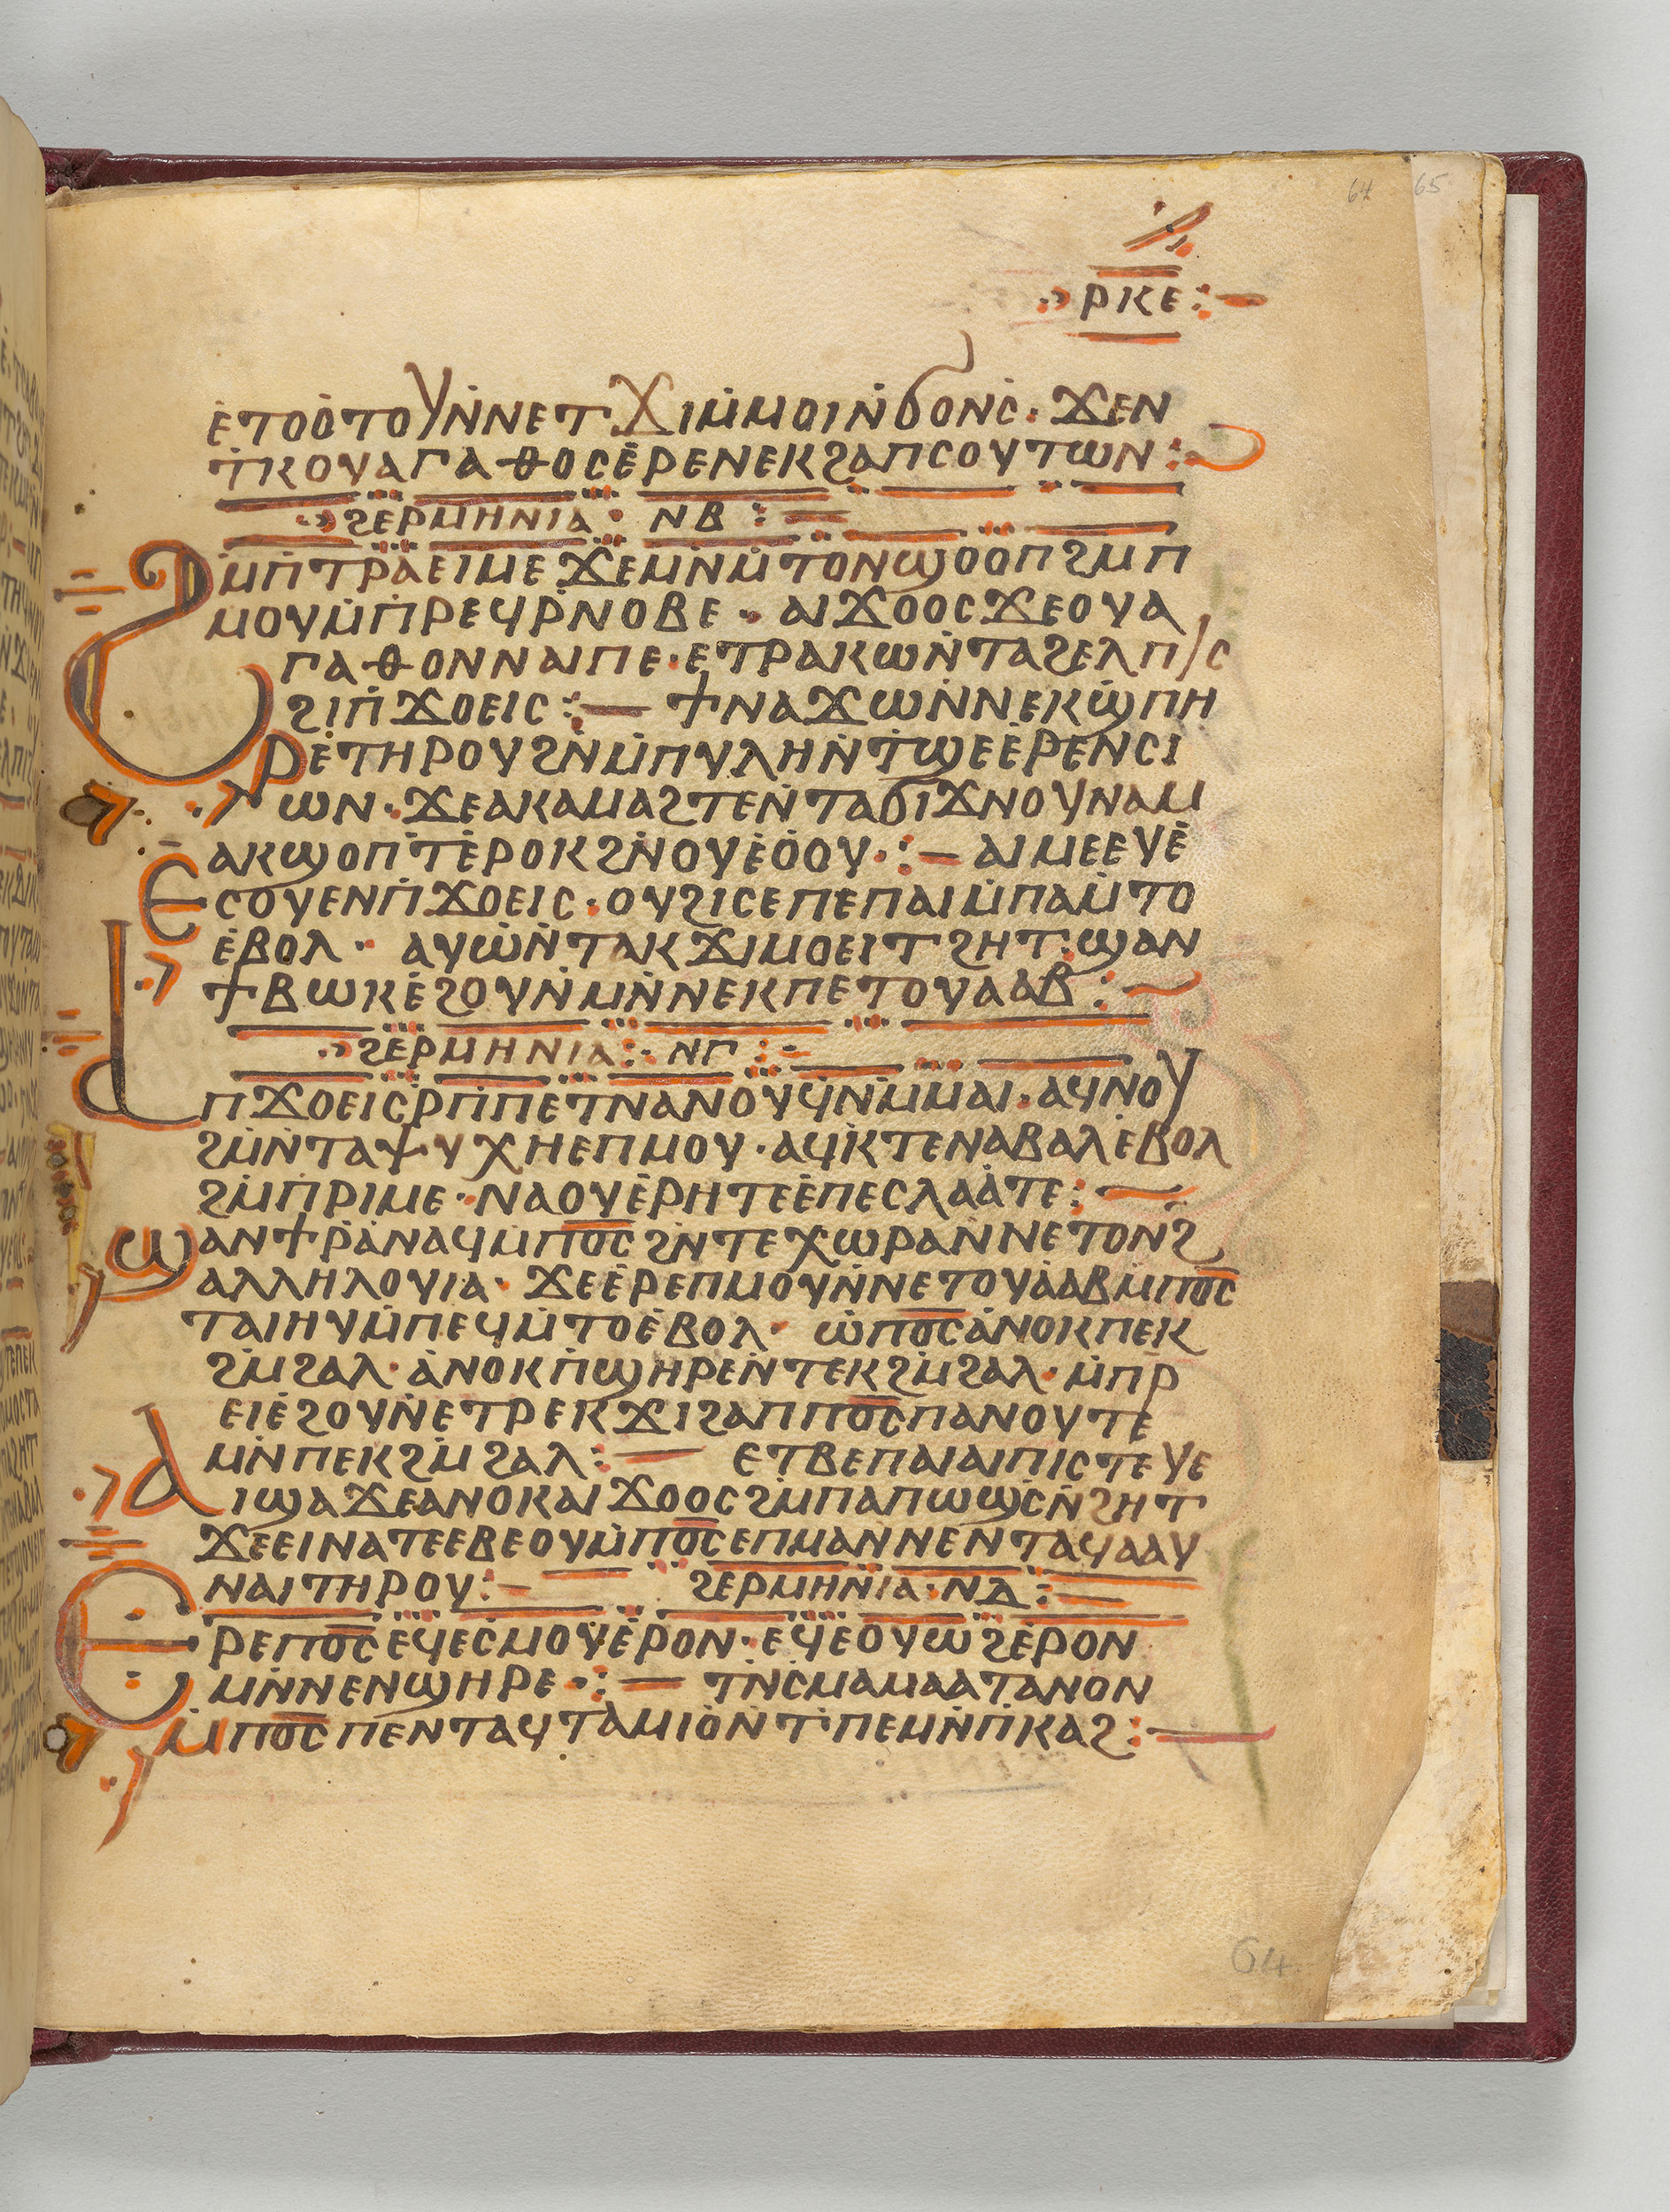 64 65
ⲣⲕⲉ
ⲉⲧⲟⲟⲧⲟⲩⲛ̇ⲛⲉⲧϫⲓⲙ̇ⲙⲟⲓⲛ̇ϭⲟⲛⲥ̇· ϫⲉⲛ
ⲧ̇ⲕⲟⲩⲁⲅⲁⲑⲟⲥⲉ̇ⲣⲉⲛⲉⲕϩⲁⲡⲥⲟⲩⲧⲱⲛ:
ϩⲉⲣⲙⲏⲛⲓⲁ· ⲛⲃ:
ϩⲙ̇ⲡ̇ⲧⲣⲁⲉⲓⲙⲉϫⲉⲙⲛ̇ⲙ̇ⲧⲟⲛϣⲟⲟⲡϩⲙⲡ
ⲙⲟⲩⲙ̇ⲡ̇ⲣⲉϥⲣ̇ⲛⲟⲃⲉ· ⲁⲓϫⲟⲟⲥϫⲉⲟⲩⲁ
ⲅⲁⲑⲟⲛⲛⲁⲓⲡⲉ·ⲉⲧⲣⲁⲕⲱⲛ̇ⲧⲁϩⲉⲗⲡⲓⲥ
ϩⲓⲡ̇ϫⲟⲉⲓⲥ:— ϯⲛⲁϫⲱⲛ̇ⲛⲉⲕϣ̇ⲡⲏ
ⲣⲉ̇ⲧⲏⲣⲟⲩϩⲛ̇ⲙ̇ⲡⲩⲗⲏⲛ̇ⲧ̇ϣⲉⲉ̇ⲣⲉⲛⲥⲓ
ⲱⲛ·ϫⲉⲁⲕⲁⲙⲁϩⲧⲉⲛ̇ⲧⲁϭⲓϫⲛⲟⲩⲛⲁⲙ
ⲁⲕϣⲟⲡ̇ⲧ̇ⲉ̇ⲣⲟⲕϩⲛ̇ⲟⲩⲉ̇ⲟ̇ⲟⲩ·:— ⲁⲓⲙⲉⲉⲩⲉ̇
ⲉⲥⲟⲩⲉⲛⲡ̇ϫⲟⲉⲓⲥ·ⲟⲩϩⲓⲥⲉⲡⲉⲡⲁⲓⲙ̇ⲡⲁⲙ̇ⲧⲟ
ⲉ̇ⲃⲟⲗ· ⲁⲩⲱ̇ⲛ̇ⲧⲁⲕϫⲓⲙⲟⲉⲓⲧϩⲏⲧ·ϣⲁⲛ
ϯⲃⲱⲕⲉ̇ϩⲟⲩⲛⲙ̇ⲛ̇ⲛⲉⲕⲡⲉⲧⲟⲩⲁⲁⲃ:
ϩⲉⲣⲙⲏⲛⲓⲁ:· ⲛⲅ:
ⲁⲡϫⲟⲉⲓⲥⲣ̇ⲡ̇ⲡⲉⲧⲛⲁⲛⲟⲩϥⲛⲙ̇ⲙⲁⲓ·ⲁϥⲛⲟⲩ
ϩⲙ̇ⲛ̇ⲧⲁⲯⲩⲭⲏⲉⲡⲙⲟⲩ·ⲁϥⲕ̇ⲧⲉⲛⲁⲃⲁⲗⲉ̇ⲃⲟⲗ
ϩⲙ̇ⲡ̇ⲣⲓⲙⲉ·ⲛⲁⲟⲩⲉ̇ⲣⲏⲧⲉⲉ̇ⲡⲉⲥⲗⲁⲁ̇ⲧⲉ:
ϣⲁⲛϯⲣ̇ⲁ̇ⲛⲁϥⲙⲡⲟ̅ⲥ̅ϩⲛ̇ⲧⲉⲭⲱⲣⲁⲛ̇ⲛⲉⲧⲟⲛϩ̇
ⲁⲗⲗⲏⲗⲟⲩⲓⲁ· ϫⲉⲉ̇ⲣⲉⲡⲙⲟⲩⲛ̇ⲛⲉⲧⲟⲩⲁ̇ⲁⲃⲙ̇ⲡⲟ̅ⲥ̅
ⲧⲁⲓⲏⲩⲙ̇ⲡⲉϥⲙ̇ⲧⲟⲉ̇ⲃⲟⲗ· ⲱ̇ⲡⲟ̅ⲥ̅ⲁ̇ⲛⲟⲕⲡⲉⲕ
ϩⲙ̇ϩⲁⲗ·ⲁ̇ⲛⲟⲕⲡ̇ϣⲏⲣⲉⲛ̇ⲧⲉⲕϩⲙ̇ϩⲁⲗ·ⲙ̇ⲡⲣ̇
ⲉⲓⲉ̇ϩⲟⲩⲛ̇ⲉⲧⲣⲉⲕϫⲓϩⲁⲡⲡⲟ̅ⲥ̅ⲡⲁⲛⲟⲩⲧⲉ
ⲙⲛ̇ⲡⲉⲕϩⲙ̇ϩⲁⲗ:— ⲉⲧⲃⲉⲡⲁⲓⲁⲓⲡⲓⲥⲧⲉⲩⲉ
ⲁⲓϣⲁϫⲉⲁⲛⲟⲕⲁⲓϫⲟⲟⲥϩⲙ̇ⲡⲁⲡⲱϣⲥⲛ̇ϩⲏⲧ
ϫⲉⲉⲓⲛⲁⲧⲉⲉⲃⲉⲟⲩⲙ̇ⲡⲟ̅ⲥ̅ⲉⲡⲙⲁⲛ̇ⲛⲉⲛⲧⲁϥⲁⲁⲩ
ⲛⲁⲓⲧⲏⲣⲟⲩ:— ϩⲉⲣⲙⲏⲛⲓⲁ·ⲛⲇ:
ⲉⲣⲉⲡⲟ̅ⲥ̅ⲉϥⲉⲥⲙⲟⲩⲉ̇ⲣⲟⲛ·ⲉϥⲉⲟⲩⲱϩⲉ̇ⲣⲟⲛ
ⲙⲛ̇ⲛⲉⲛϣⲏⲣⲉ·:— ⲧⲛ̇ⲥ̇ⲙⲁⲙⲁⲁⲧⲁⲛⲟⲛ
ⲙ̇ⲡⲟ̅ⲥ̅ⲡⲉⲛⲧⲁϥⲧⲁⲙⲓⲟ̇ⲛ̇ⲧ̇ⲡⲉⲙⲛ̇ⲡ̇ⲕⲁϩ:—
64